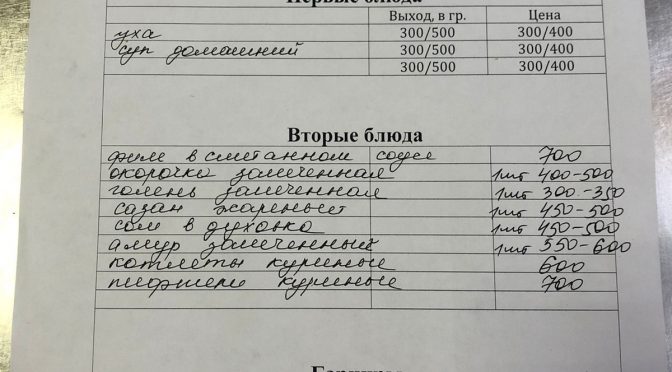 Первые блюда
Выход, в гр. Цена
уха 300/500 300/400
суп домашний 300/500 300/400
300/500 300/400
Вторые блюда
филе в сметанном соусе 700
окорочка запеченная 1шт 400-500
голень запеченная 1шт 300-350
сазан жареный 1шт 450-500
сом в духовке 1шт 450-500
амур запеченный 1шт 550-600
котлеты куриные 600
куриные 700